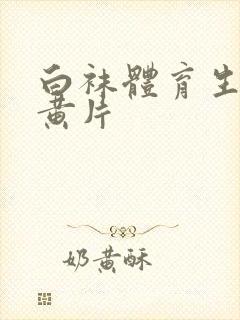 白袜體育生
黃片
奶黃酥